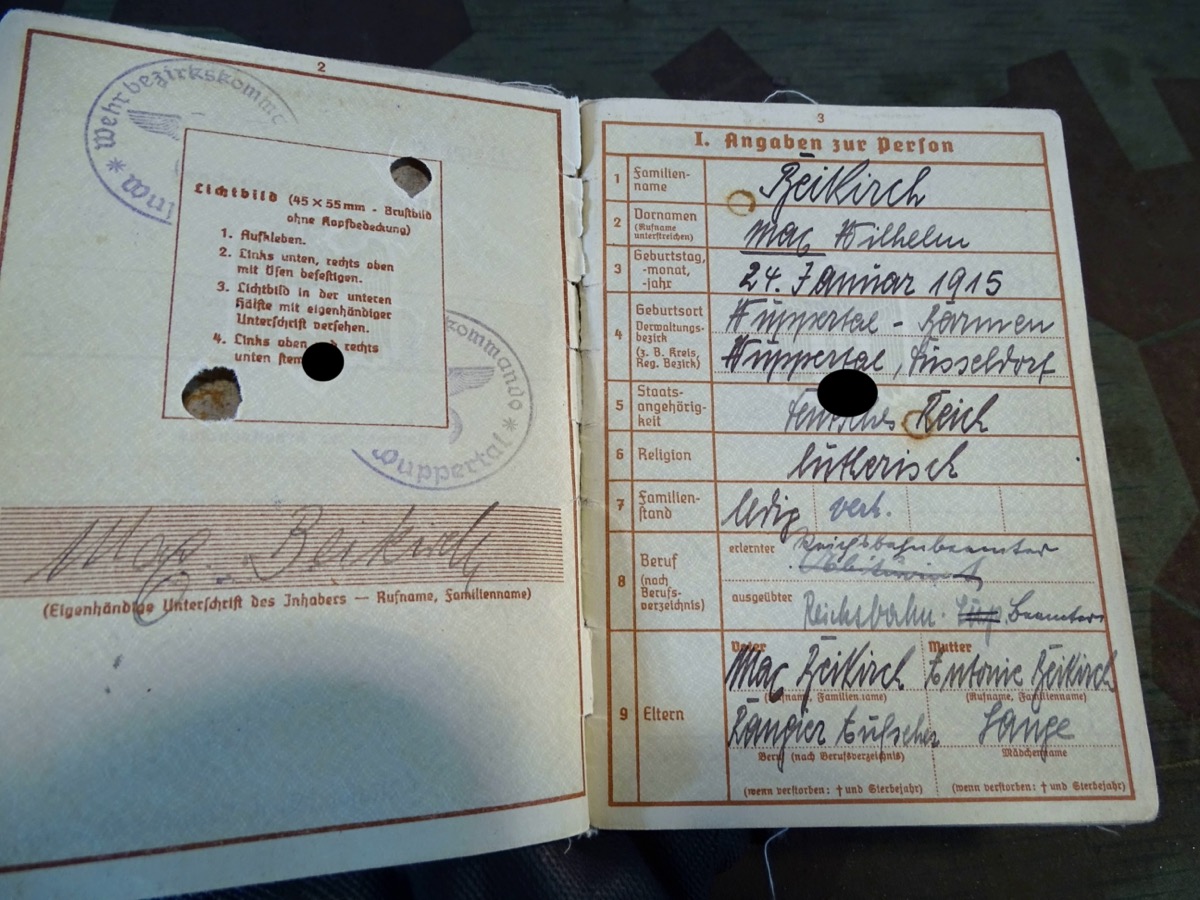 2
Wehrbezirkskomm
Lichtbild (45 × 55 mm - Brustbild
ohne Kopfbedeckung)
1. Aufkleben.
2. Links unten, rechts oben
mit Ösen befestigen.
3. Lichtbild in der unteren
Hälfte mit eigenhändiger
Unterschrift versehen.
4. Links oben rechts
unten stem
kommando
Wuppertal
Max Beikirch
(Eigenhändige Unterschrift des Inhabers — Rufname, Familienname)
3
I. Angaben zur Person
1 Familien-
name
Beikirch
2 Vornamen
(Rufname
unterstreichen)
Max Wilhelm
3 Geburtstag,
-monat,
-jahr
24. Januar 1915
4 Geburtsort
Verwaltungs-
bezirk
(z. B. Kreis,
Reg. Bezirk)
Wuppertal - Barmen
Wuppertal, Düsseldorf
5 Staats-
angehörig-
keit
Deutsches Reich
6 Religion
lutherisch
7 Familien-
stand
ledig verh.
8 Beruf
(nach
Berufs-
verzeichnis)
erlernter Reichsbahnbeamter
ausgeübter Reichsbahn. Beamter
9 Eltern
Vater
Max Beikirch
(Rufname, Familienname)
Rangier
Beruf (nach Berufsverzeichnis)
(wenn verstorben: † und Sterbejahr)
Mutter
Antonie Beikirch
(Rufname, Familienname)
Lange
Mädchenname
(wenn verstorben: † und Sterbejahr)